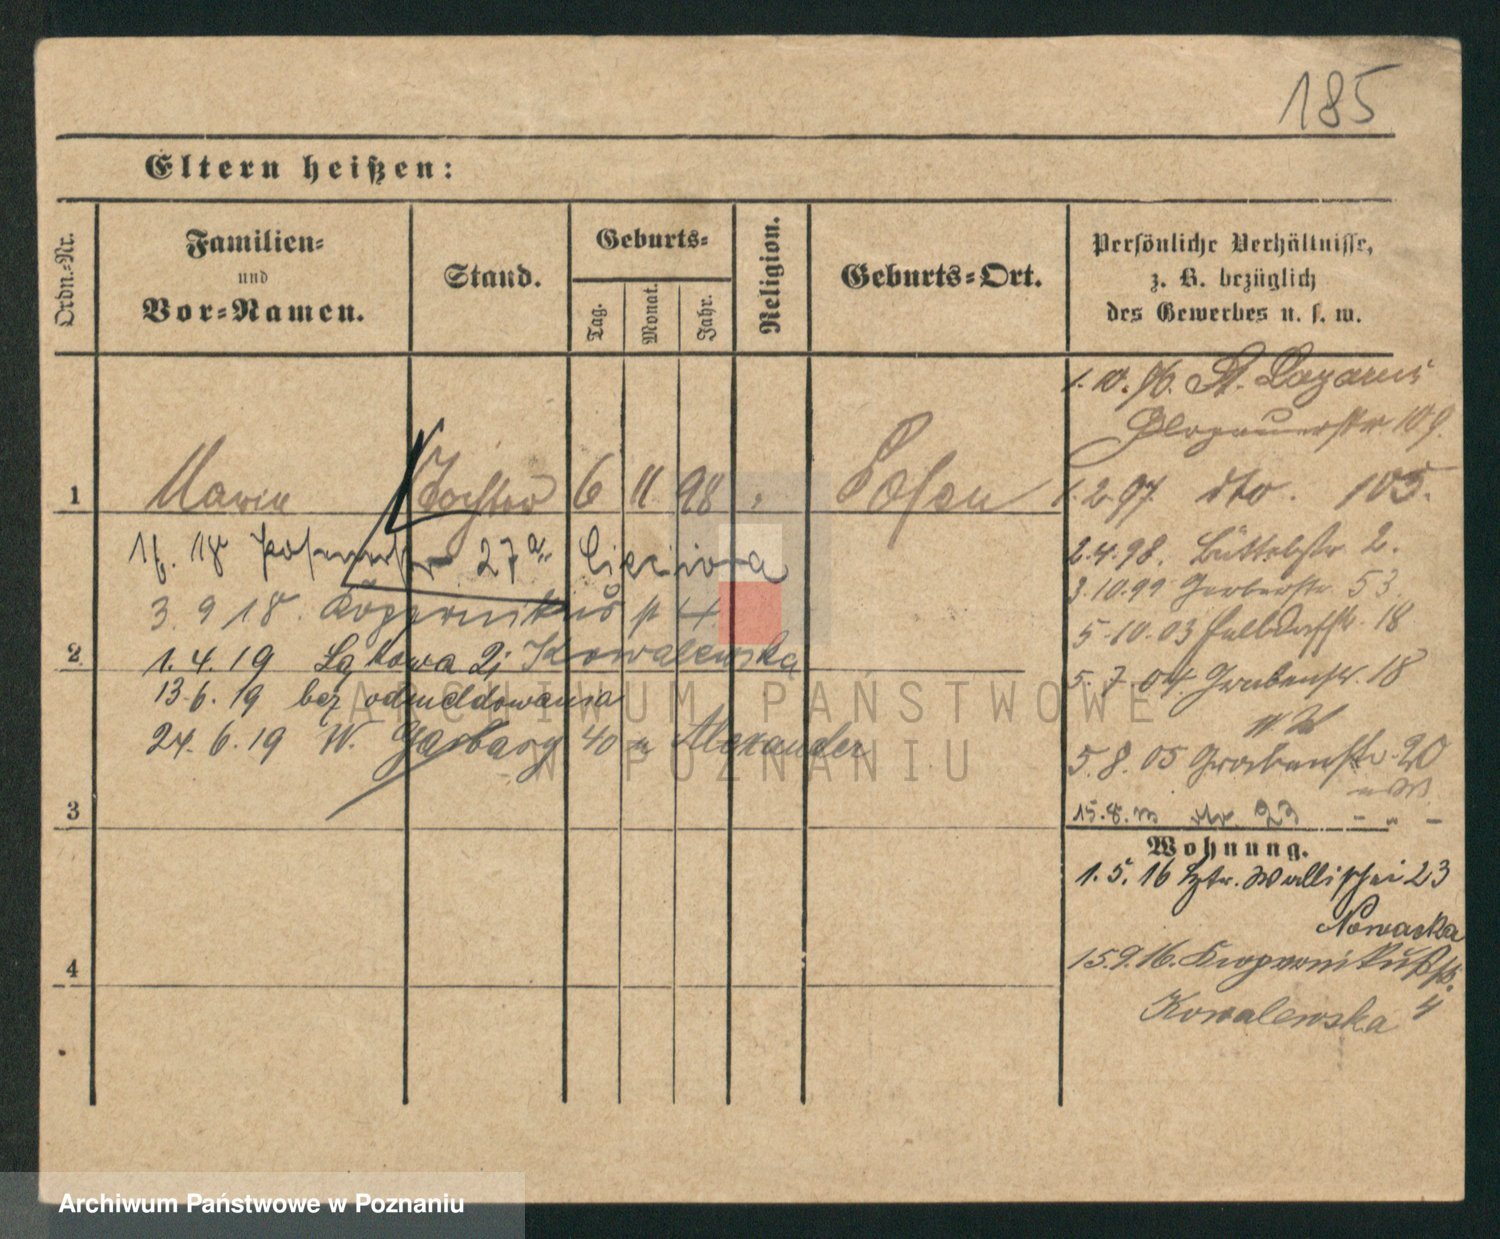 185
Eltern heißen:
Ordn.=Nr.
Familien=
und
Vor=Namen.
Stand.
Geburts=
Tag.
Monat.
Jahr.
Religion.
Geburts=Ort.
Persönliche Verhältnisse,
z. B. bezüglich
des Gewerbes u. s. w.
1. 10. 96. St. Lazarus
Glogauerstr. 109.
1 Maria Tochter 6 11 98 Posen
1.2.97. dto. 105.
2.4.98. Büttelstr. 2.
3.10.99 Gerberstr. 53
5.10.03 18
5.7.04. Grabenstr. 18
5.8.05 Grabenstr. 20
15.8. 23 - " -
27a
3. 9 18. Kopernikus 4
2 1. 4. 19 Łąkowa Kowalewska
13.6.19 bez odmeldowania
24.6.19 W. Garbary 40 Alexander
3
Wohnung.
1. 5. 16 Wallischei 23
Nowacka
4 15.9.16. Kopernikusstr.
Kowalewska 4
ARCHIWUM PAŃSTWOWE
W POZNANIU
Archiwum Państwowe w Poznaniu